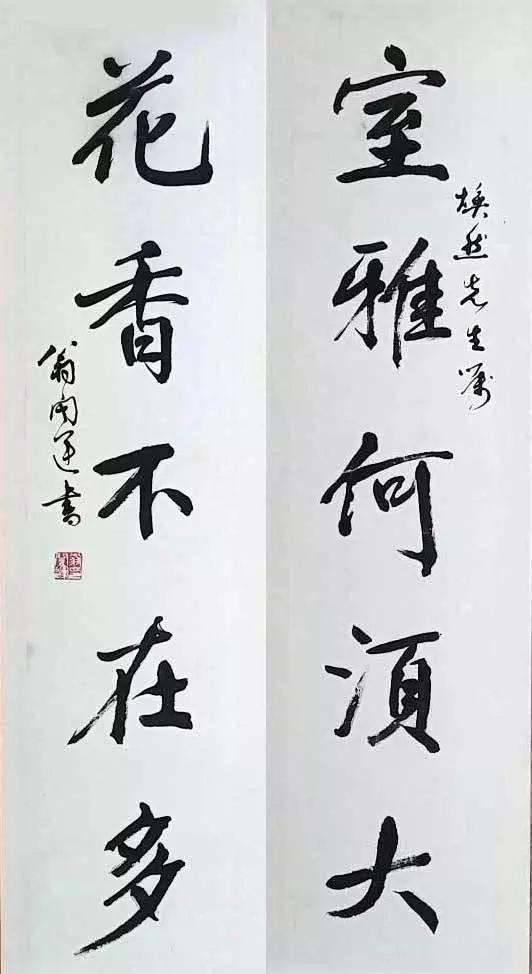 室雅何須大
煥然先生嘱
花香不在多
翁闿运书